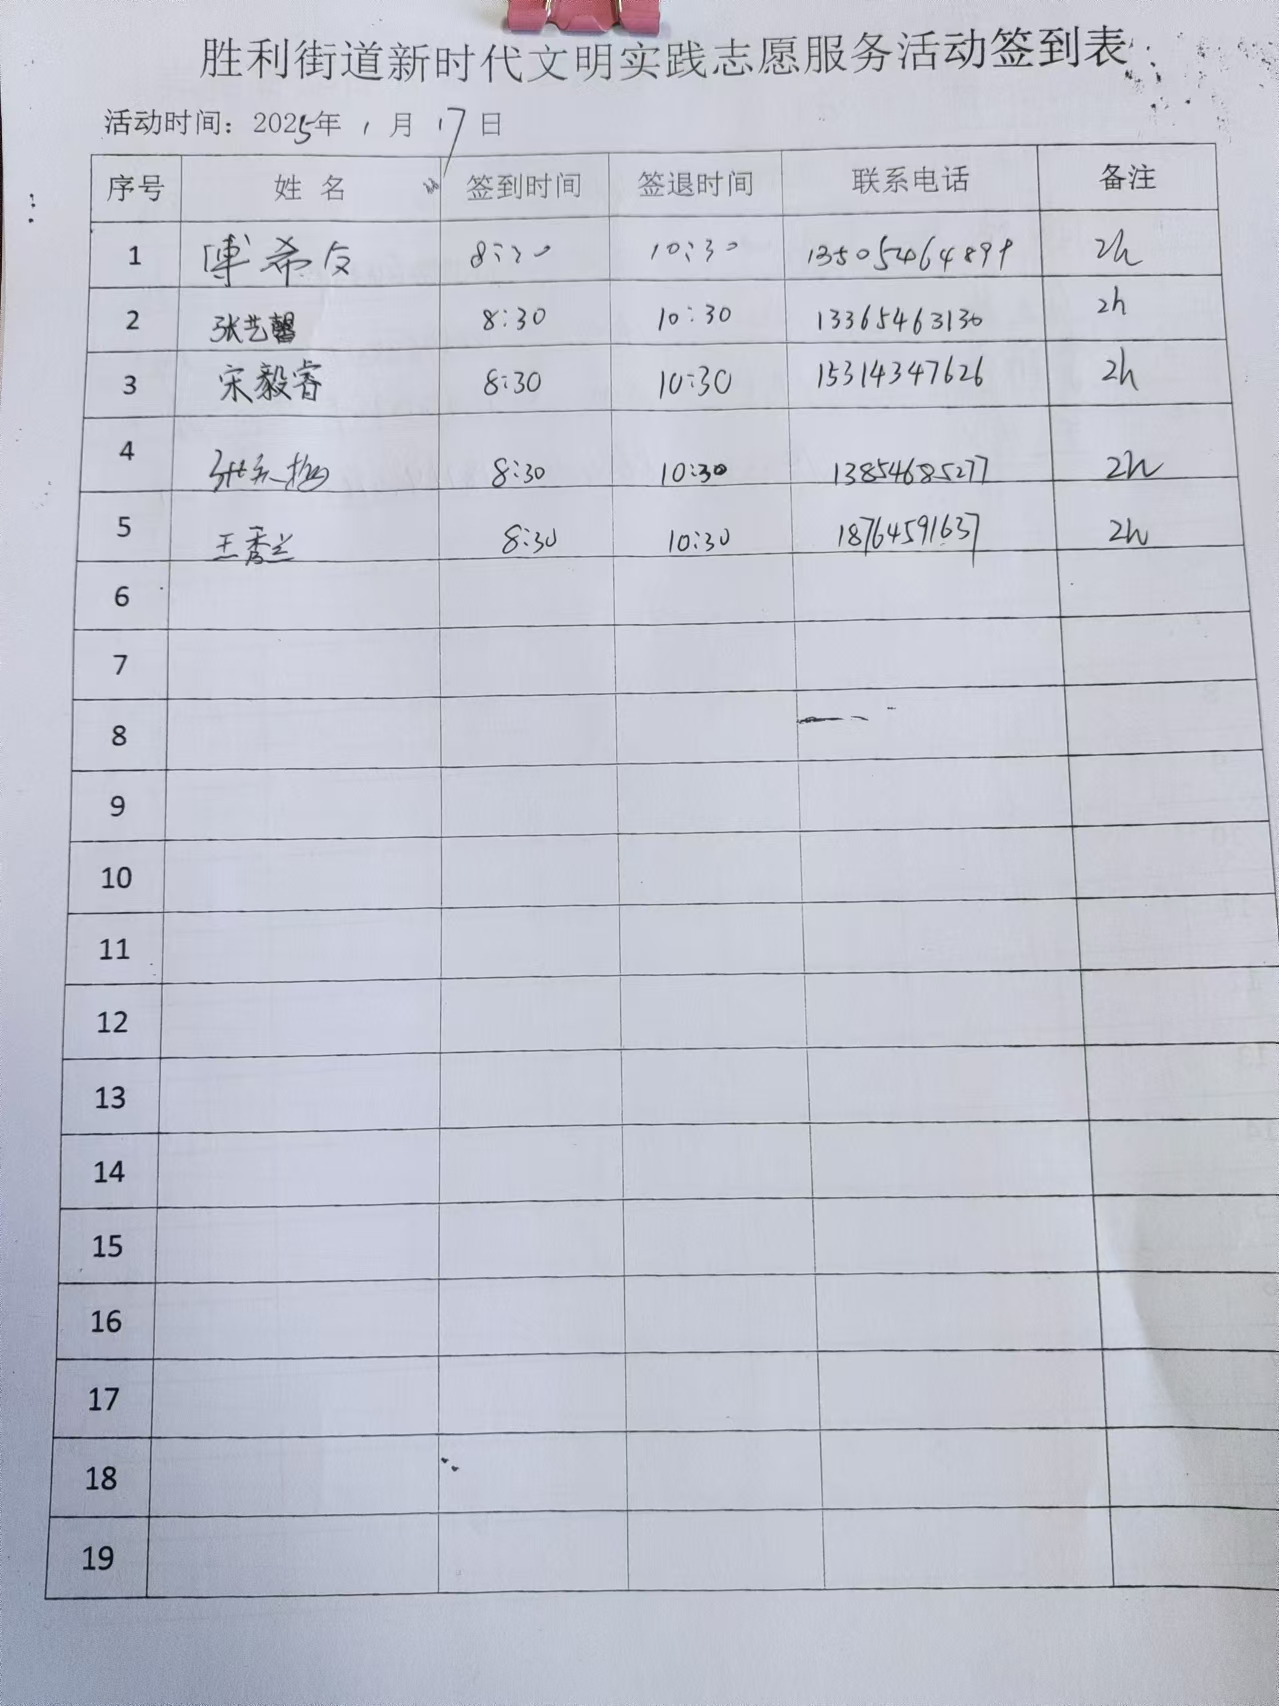 胜利街道新时代文明实践志愿服务活动签到表
活动时间：2025年 1 月 17 日
序号 姓 名 签到时间 签退时间 联系电话 备注
1 傅希友 8:30 10:30 13505464899 2h
2 张艺馨 8:30 10:30 13365463130 2h
3 宋毅睿 8:30 10:30 15314347626 2h
4 8:30 10:30 13854685277 2h
5 王秀兰 8:30 10:30 18764591637 2h
6
7
8
9
10
11
12
13
14
15
16
17
18
19